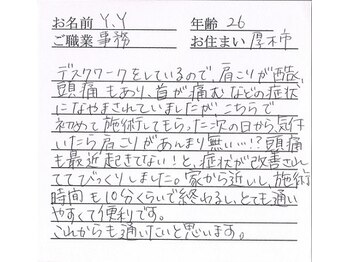 お名前 Y.Y 年齢 26
ご職業 事務 お住まい 厚木市
デスクワークをしているので、肩こりが酷く
頭痛もあり、首が痛むなどの症状
になやまされていましたがこちらで
初めて施術してもらった次の日から、気付
いたら肩こりがあんまり無い…!?頭痛
も最近起きてない!と、症状が改善され
ててびっくりしました。家から近いし、施術
時間も10分くらいで終わるし、とても通い
やすくて便利です。
これからも通いたいと思います。